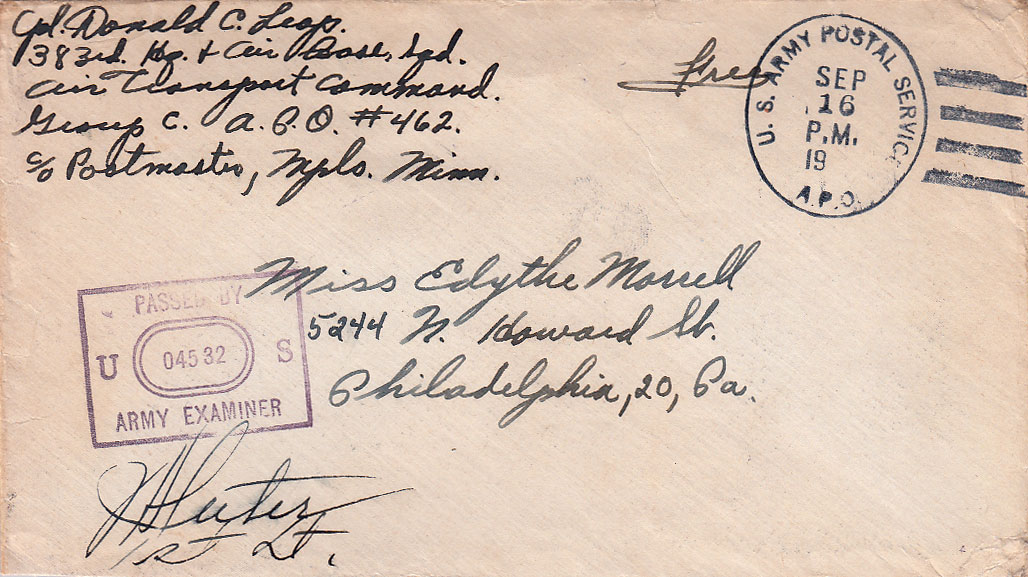 Cpl. Donald C. Leap.
383rd. Hq. & Air Base. Sqd.
Air Transport Command.
Group C. A.P.O. #462.
c/o Postmaster, Mpls. Minn.
Free
U. S. ARMY POSTAL SERVICE
SEP
16
P.M.
19
A.P.O.
Miss Edythe Morrell
5244 N. Howard St.
Philadelphia, 20, Pa.
PASSED BY
U 04532 S
ARMY EXAMINER
1st Lt.